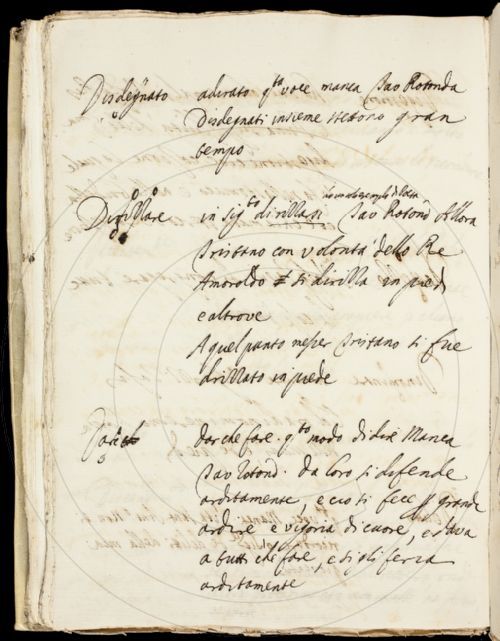 Disdegnato adirato q.to voce manca Tav Rotonda
Disdegnati insieme stetono gran
tempo
Dirillare in sig.to dirillasi Tav Rotond Allora
Tristano con volontà dello Re
Amoroldo si dirilla in piedi
e altrove
A quel punto messer Tristano si fue
dirillato in piede
dar che fare. q.to modo di dire Manca
Tav Rotond. da loro si difende
arditamente, e ciò si fece grande
ardire e vigoria di cuore, e dava
a tutti che fare, e sigli feria
arditamente